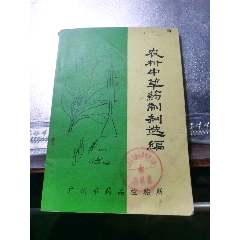 农村中草药制剂选编
广州市药品检验所